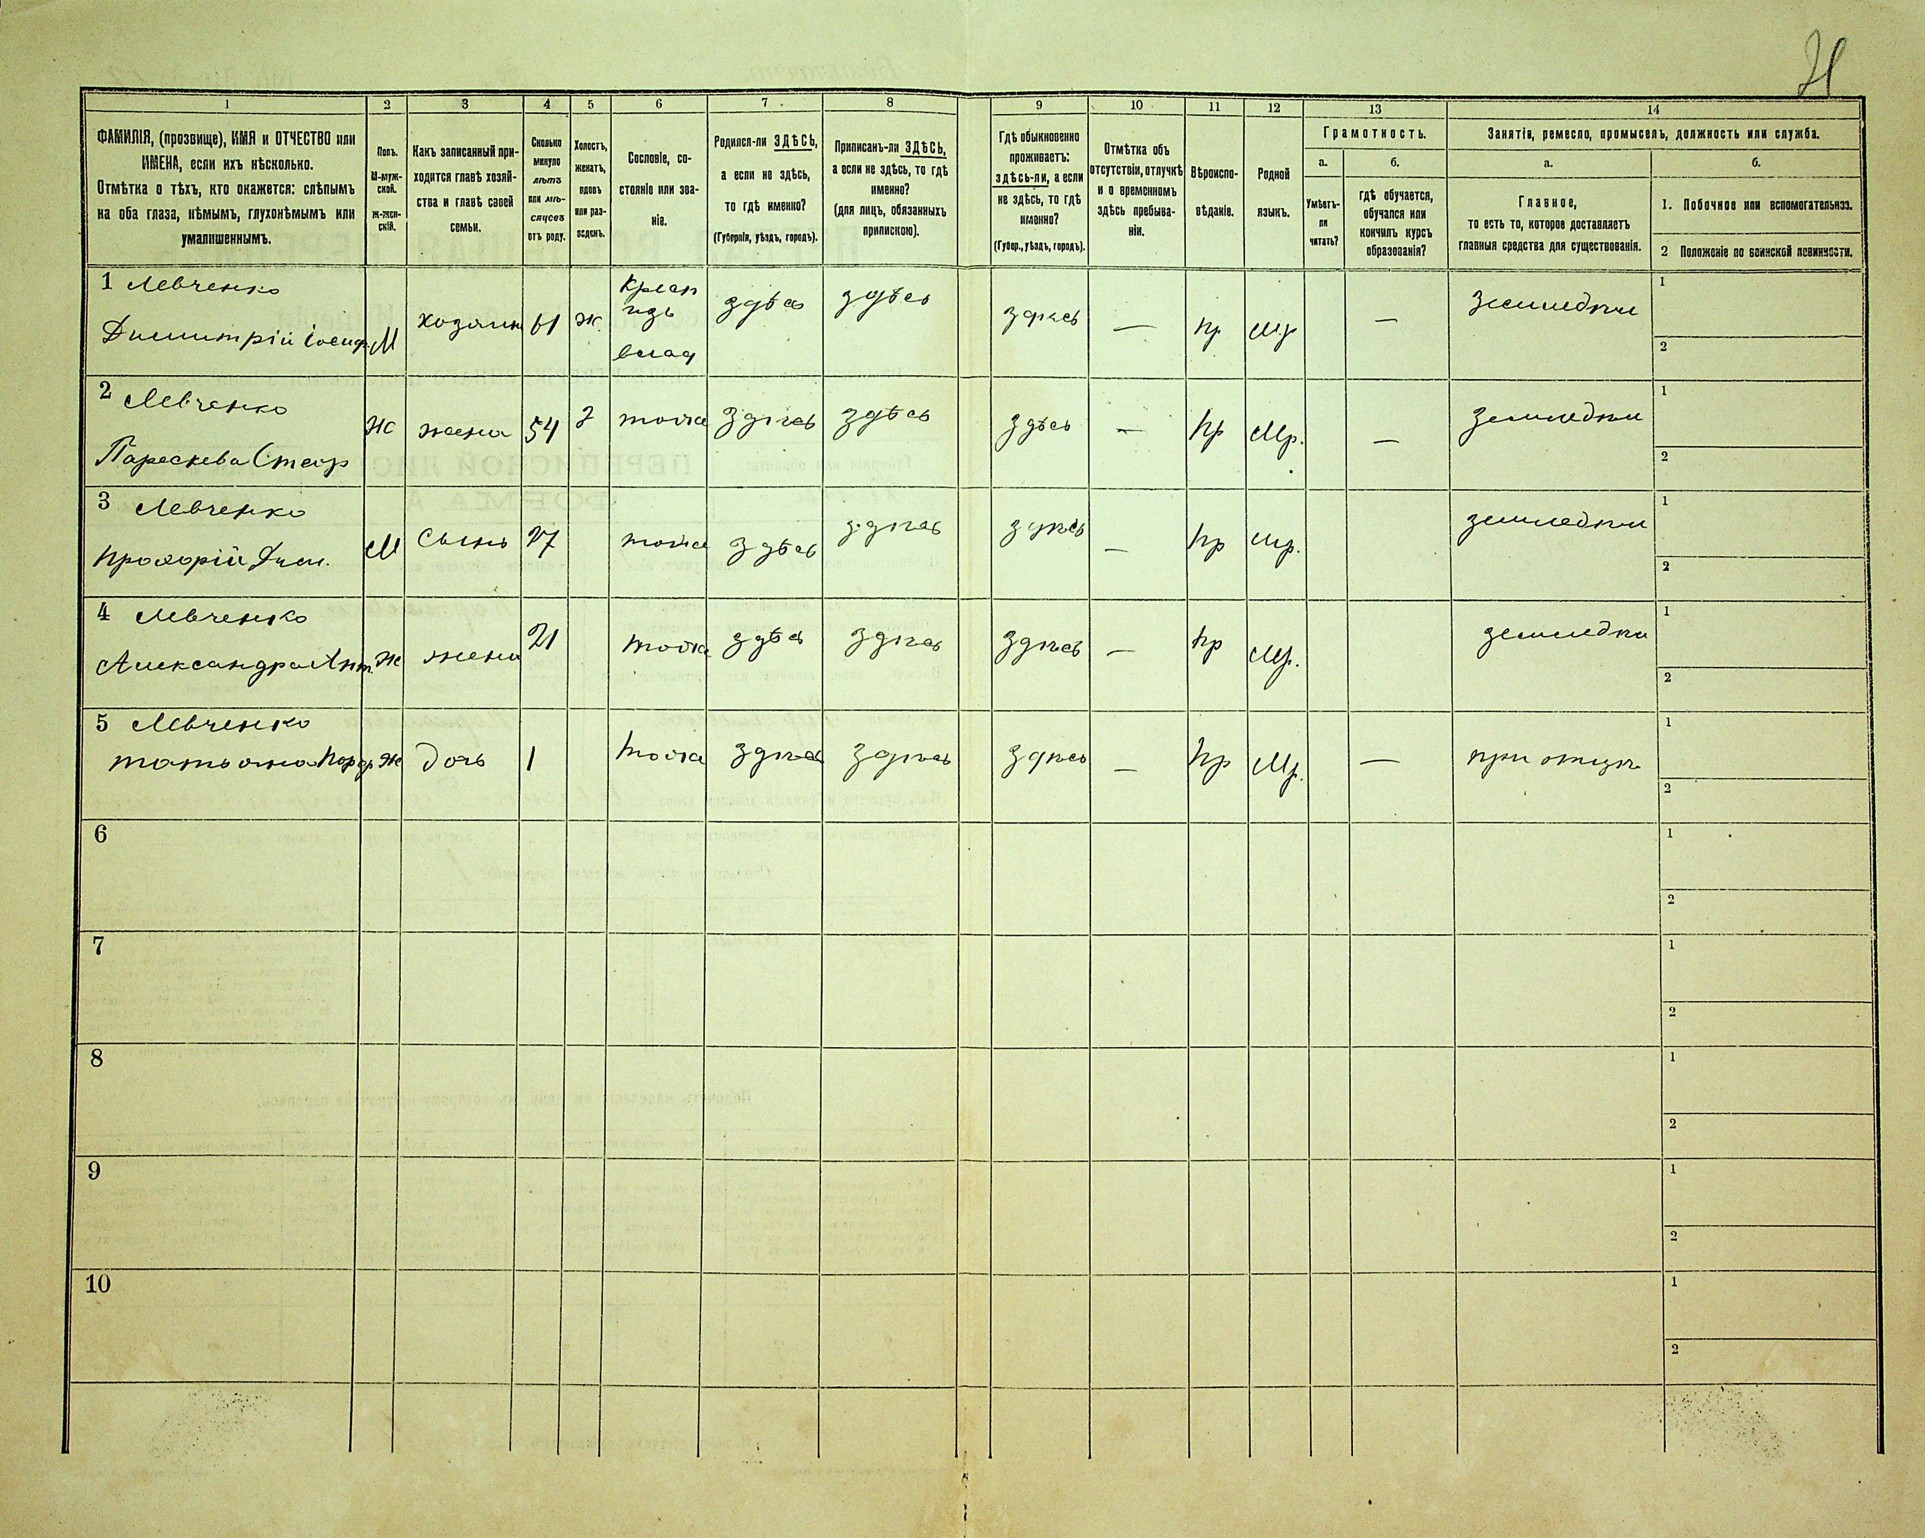 21
1 2 3 4 5 6 7 8 9 10 11 12 13 14
ФАМИЛІЯ, (прозвище), ИМЯ и ОТЧЕСТВО или
ИМЕНА, если ихъ нѣсколько.
Отмѣтка о тѣхъ, кто окажется: слѣпымъ
на оба глаза, нѣмымъ, глухонѣмымъ или
умалишеннымъ.
Полъ.
М-муж-
ской.
Ж-жен-
скій.
Какъ записанный при-
ходится главѣ хозяй-
ства и главѣ своей
семьи.
Сколько
минуло
лѣтъ
или мѣ-
сяцевъ
отъ роду.
Холостъ,
женатъ,
вдовъ
или раз-
веденъ.
Сословіе, со-
стояніе или зва-
ніе.
Родился-ли ЗДѢСЬ,
а если не здѣсь,
то гдѣ именно?
(Губернія, уѣздъ, городъ).
Приписанъ-ли ЗДѢСЬ,
а если не здѣсь, то гдѣ
именно?
(для лицъ, обязанныхъ
припискою).
Гдѣ обыкновенно
проживаетъ:
здѣсь-ли, а если
не здѣсь, то гдѣ
именно?
(Губер., уѣздъ, городъ).
Отмѣтка объ
отсутствіи, отлучкѣ
и о временномъ
здѣсь пребыва-
ніи.
Вѣроиспо-
вѣданіе.
Родной
языкъ.
Грамотность.
а. б.
Умѣетъ-
ли
читать?
гдѣ обучается,
обучался или
кончилъ курсъ
образованія?
Занятіе, ремесло, промыселъ, должность или служба.
а. б.
Главное,
то есть то, которое доставляетъ
главныя средства для существованія.
1. Побочное или вспомогательное.
2 Положеніе по воинской повинности.
1 Левченко
Димитрій Іосиф. М хозяинъ 61 ж Крест
изъ
влад здѣсь здѣсь здѣсь — пр Мр — земледѣл 1
2
2 Левченко
Параскева Ж жена 54 2 тоже здѣсь здѣсь здѣсь — пр Мр. — земледѣл 1
2
3 Левченко
Прохорій Дим. М сынъ 27 тоже здѣсь здѣсь здѣсь — пр Мр. земледѣл 1
2
4 Левченко
Александра Ант. Ж жена 21 тоже здѣсь здѣсь здѣсь — пр Мр. земледѣл 1
2
5 Левченко
Татьяна Ж дочь 1 тоже здѣсь здѣсь здѣсь — пр Мр. — при отцѣ 1
2
6 1
2
7 1
2
8 1
2
9 1
2
10 1
2